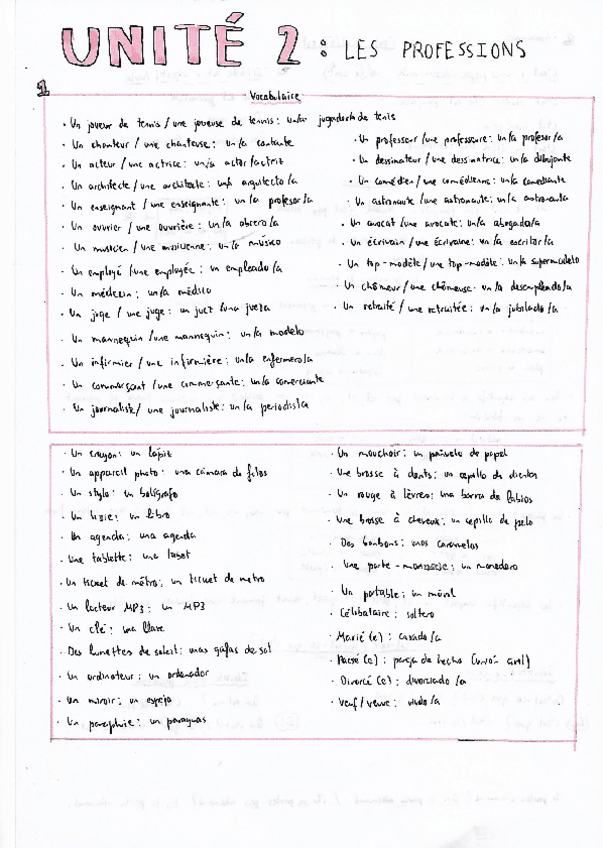 UNITÉ 2: LES PROFESSIONS
1
Vocabulaire
· Un joueur de tennis / une joueuse de tennis: un/a jugador/a de tenis
· Un chanteur / une chanteuse: un/a cantante
· Un acteur / une actrice: un/a actor/actriz
· Un architecte / une architecte: un/a arquitecto/a
· Un enseignant / une enseignante: un/a profesor/a
· Un ouvrier / une ouvrière: un/a obrero/a
· Un musicien / une musicienne: un/a músico
· Un employé / une employée: un empleado/a
· Un médecin: un/a médico
· Un juge / une juge: un juez / una jueza
· Un mannequin / une mannequin: un/a modelo
· Un infirmier / une infirmière: un/a enfermero/a
· Un commerçant / une commerçante: un/a comerciante
· Un journaliste / une journaliste: un/a periodista
· Un professeur / une professeure: un/a profesor/a
· Un dessinateur / une dessinatrice: un/a dibujante
· Un comédien / une comédienne: un/a comediante
· Un astronaute / une astronaute: un/a astronauta
· Un avocat / une avocate: un/a abogado/a
· Un écrivain / une écrivaine: un/a escritor/a
· Un top-modèle / une top-modèle: un/a supermodelo
· Un chômeur / une chômeuse: un/a desempleado/a
· Un retraité / une retraitée: un/a jubilado/a
· Un crayon: un lápiz
· Un appareil photo: una cámara de fotos
· Un stylo: un bolígrafo
· Un livre: un libro
· Un agenda: una agenda
· Une tablette: una tablet
· Un ticket de métro: un ticket de metro
· Un lecteur MP3: un MP3
· Un clé: una llave
· Des lunettes de soleil: unas gafas de sol
· Un ordinateur: un ordenador
· Un miroir: un espejo
· Un parapluie: un paraguas
· Un mouchoir: un pañuelo de papel
· Une brosse à dents: un cepillo de dientes
· Un rouge à lèvres: una barra de labios
· Une brosse à cheveux: un cepillo de pelo
· Des bonbons: unos caramelos
· Une porte-monnaie: un monedero
· Un portable: un móvil
· Célibataire: soltero
· Marié(e): casado/a
· Pacsé(e): pareja de hecho (unión civil)
· Divorcé(e): divorciado/a
· Veuf/veuve: viudo/a